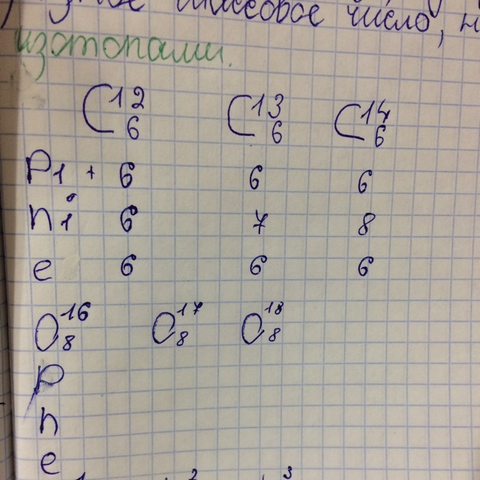 массовое число, н
изотопами.
C 12 6 C 13 6 C 14 6
P1 + 6 6 6
n 1 0 6 7 8
e 6 6 6
O 16 8 O 17 8 O 18 8
p
n
e
1 2 3